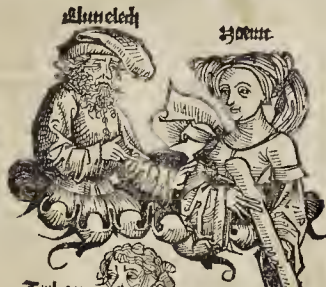 Elimelech Noemi